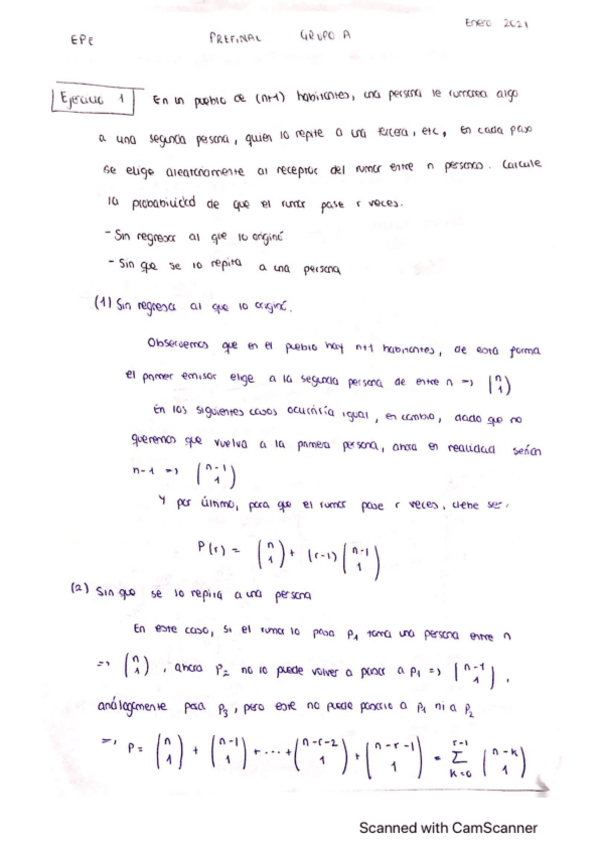 Enero 2021
EPE PREFINAL GRUPO A
Ejercicio 1 En un pueblo de (n+1) habitantes, una persona le rumorea algo
a una segunda persona, quien lo repite a una tercera, etc, en cada paso
se elige aleatoriamente al receptor del rumor entre n personas. Calcule
la probabilidad de que el rumor pase r veces.
- Sin regresar al que lo originó
- Sin que se lo repita a una persona
(1) Sin regresar al que lo originó.
Observemos que en el pueblo hay n+1 habitantes, de esta forma
el primer emisor elige a la segunda persona de entre n => (n 1)
En los siguientes casos ocurriría igual, en cambio, dado que no
queremos que vuelva a la primera persona, ahora en realidad serían
n-1 => (n-1 1)
Y por último, para que el rumor pase r veces, tiene ser:
P(r) = (n 1) + (r-1) (n-1 1)
(2) Sin que se lo repita a una persona
En este caso, si el rumor lo pasa p1 toma una persona entre n
=> (n 1), ahora P2 no lo puede volver a pasar a p1 => (n-1 1),
análogamente pasa p3, pero este no puede pasarlo a p1 ni a p2
=> P= (n 1) + (n-1 1) + ... + (n-r-2 1) + (n-r-1 1) = r-1 Σ k=0 (n-k 1)
Scanned with CamScanner